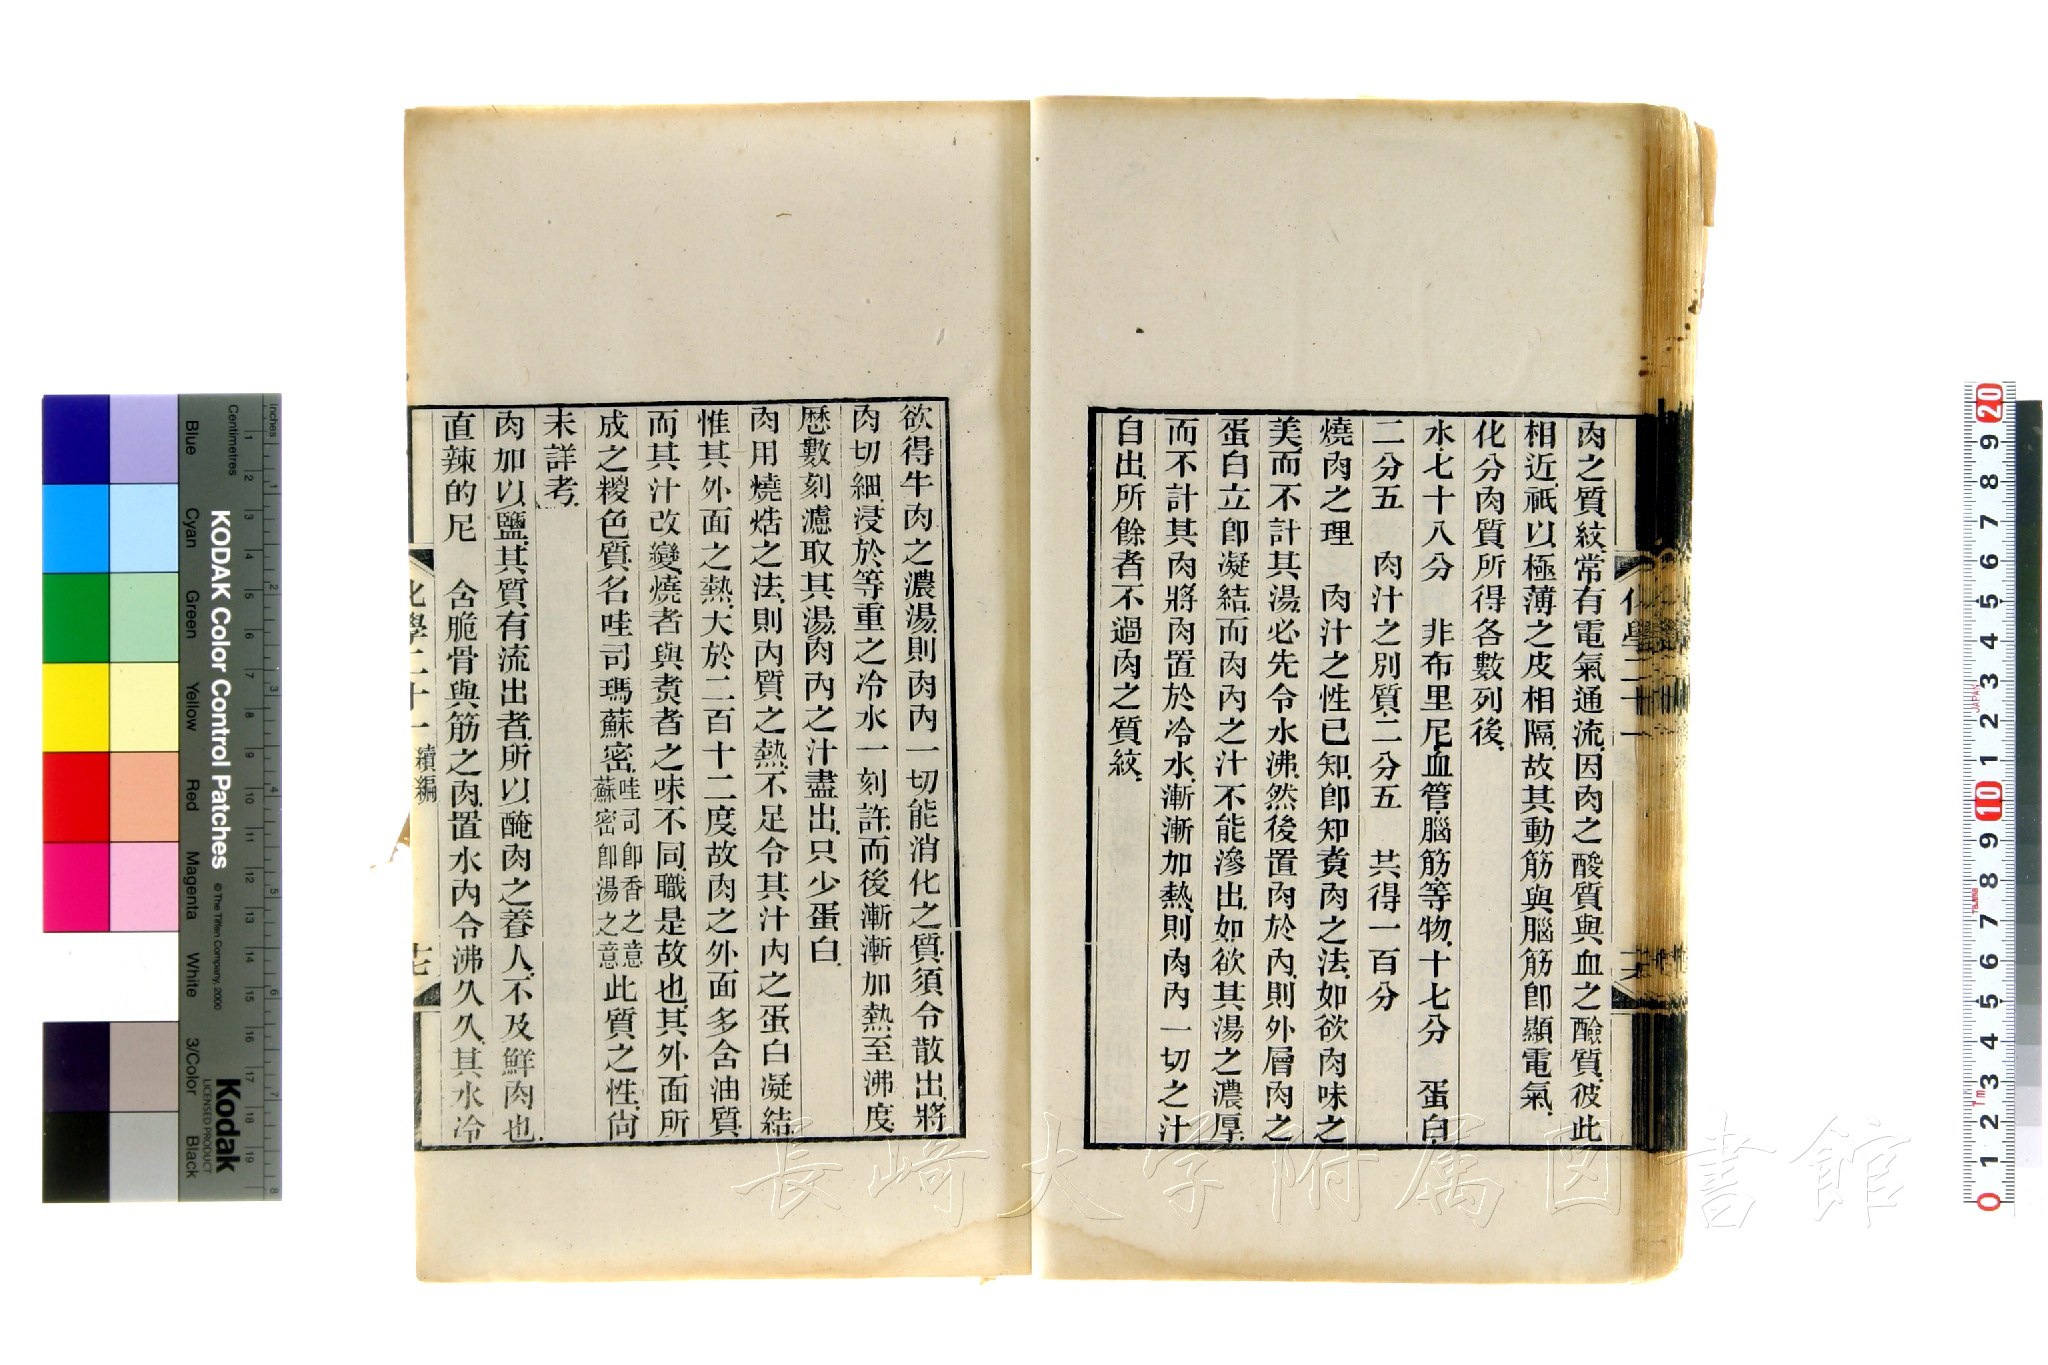 肉之質紋、常有電氣通流、因肉之酸質與血之鹼質、彼此
相近、祇以極薄之皮相隔、故其動筋與腦筋卽顯電氣、
化分肉質所得各數列後、
水、七十八分　非布里尼、血管、腦筋、等物、十七分　蛋白、
二分五　肉汁之別質、二分五　共得一百分
燒肉之理　肉汁之性已知、卽知煑肉之法、如欲肉味之
美、而不計其湯、必先令水沸、然後置肉於內、則外層肉之
蛋白立卽凝結、而肉內之汁不能滲出、如欲其湯之濃厚、
而不計其肉、將肉置於冷水、漸漸加熱、則肉內一切之汁
自出、所餘者不過肉之質紋、
化學二十一
欲得牛肉之濃湯、則肉內一切能消化之質、須令散出、將
肉切細、浸於等重之冷水一刻許、而後漸漸加熱、至沸度、
歷數刻、濾取其湯、肉內之汁盡出、只少蛋白、
肉用燒焅之法、則內質之熱、不足令其汁內之蛋白凝結、
惟其外面之熱、大於二百十二度、故肉之外面多含油質、
而其汁改變、燒者與煑者之味不同、職是故也、其外面所
成之糉色質、名哇司瑪蘇密、哇司卽香之意蘇密卽湯之意此質之性、尙
未詳考、
肉加以鹽、其質有流出者、所以醃肉之養人、不及鮮肉也、
直辣的尼　含脆骨與筋之肉、置水內令沸久久、其水冷
化學二十一 續編
十七
KODAK Color Control Patches
© The Tiffen Company, 2000
Kodak
LICENSED PRODUCT
Inches
Centimetres
Blue
Cyan
Green
Yellow
Red
Magenta
White
3/Color
Black
長崎大学附属図書館